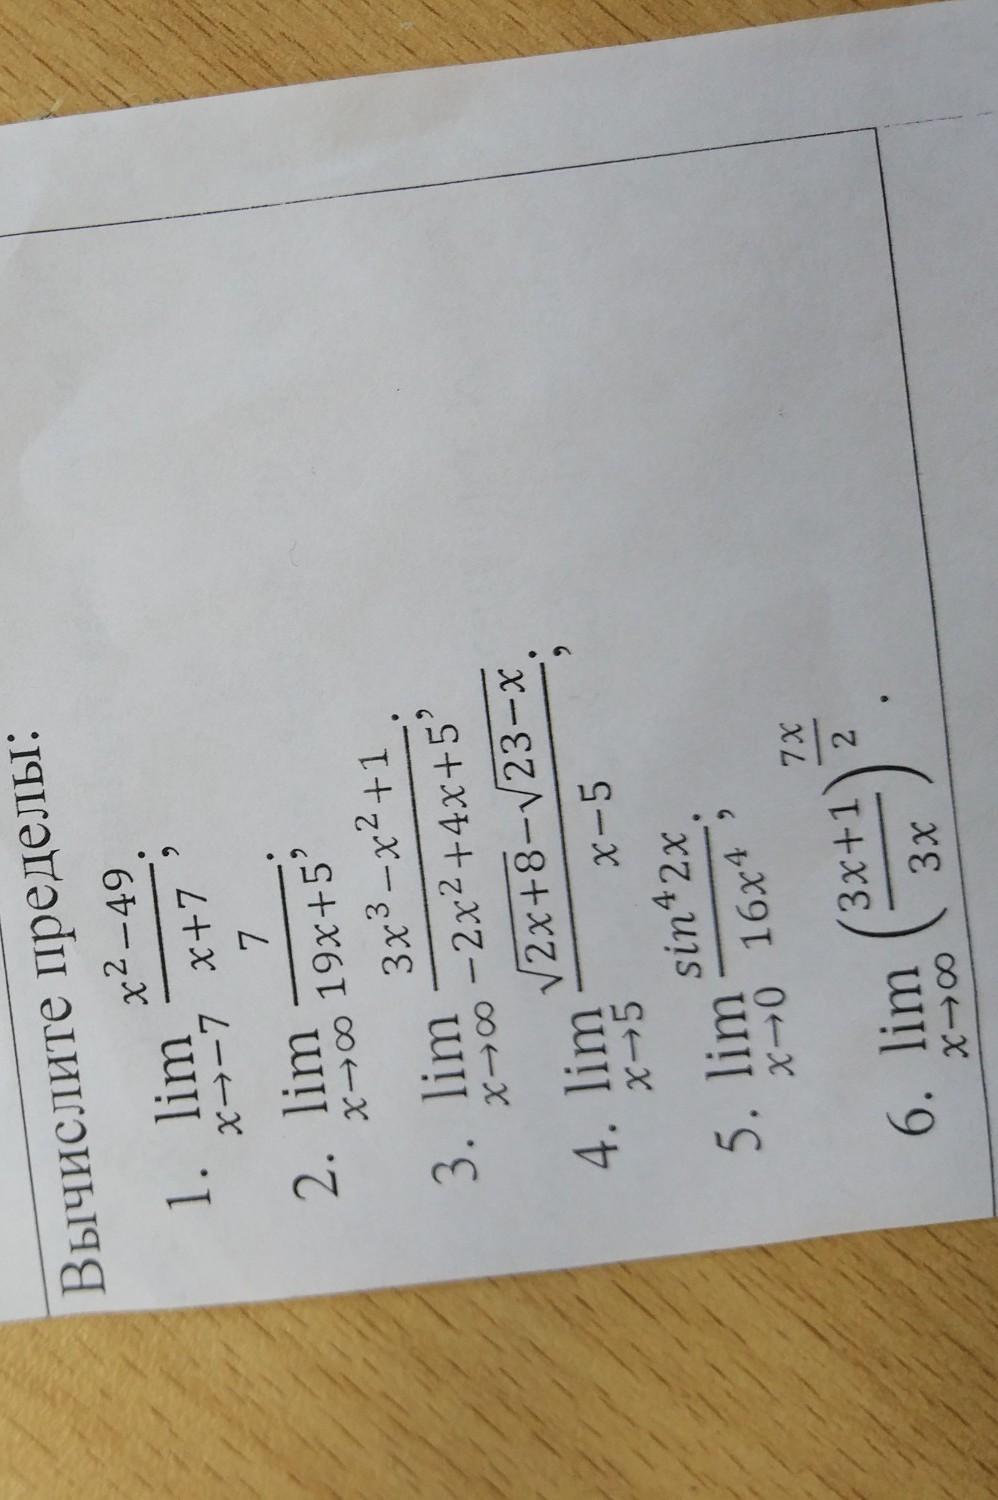 Вычислите пределы:
1. lim_{x→−7} \frac{x^2−49}{x+7};
2. lim_{x→∞} \frac{7}{19x+5};
3. lim_{x→∞} \frac{3x^3−x^2+1}{−2x^2+4x+5};
4. lim_{x→5} \frac{\sqrt{2x+8}−\sqrt{23−x}}{x−5};
5. lim_{x→0} \frac{sin^4 2x}{16x^4};
6. lim_{x→∞} (\frac{3x+1}{3x})^{\frac{7x}{2}}.